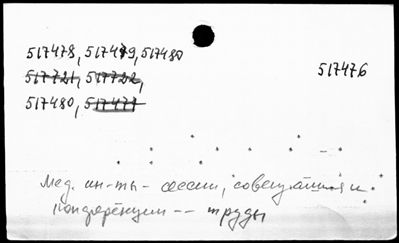 517478, 517479, 517480
517476
517721, 517722,
517480, 517477
Мед. ин-ты - сессии, совещания и
конференции -- труды